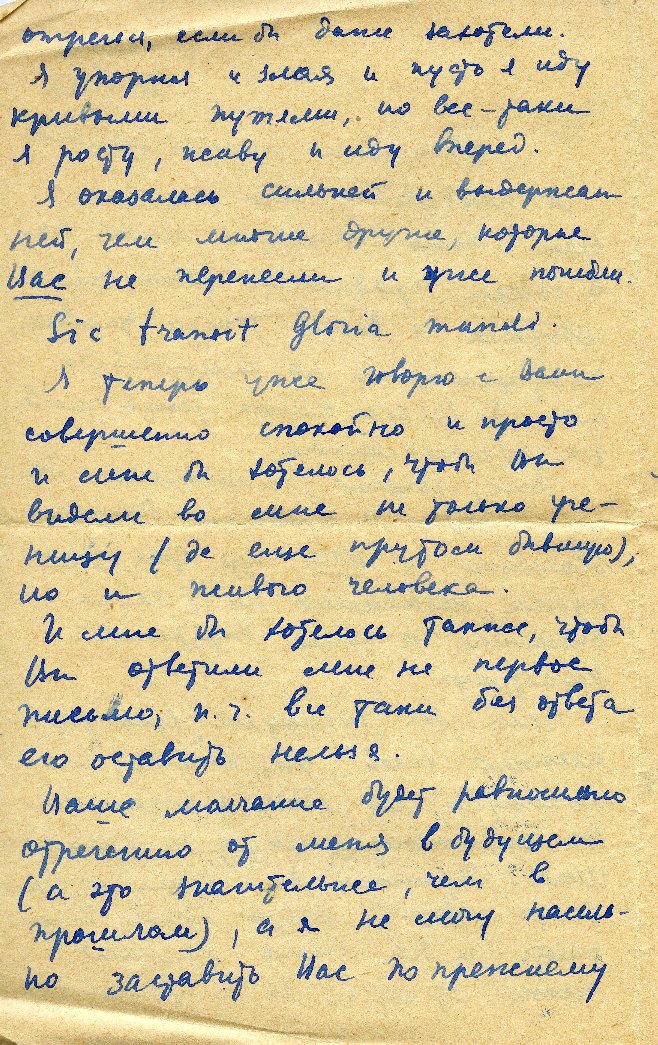 отречься, если бы даже захотели.
Я упорная и злая и пусть я иду
кривыми путями, но все-таки
я расту, живу и иду вперед.
Я оказалась сильней и выдержан-
ней, чем многие другие, которые
Вас не перенесли и уже погибли.
Sic transit Gloria mundi.
Я теперь уже говорю с Вами
совершенно спокойно и просто
и мне бы хотелось, чтобы Вы
видели во мне не только уче-
ницу (да еще притом бывшую),
но и живого человека.
И мне бы хотелось также, чтобы
Вы ответили мне на первое
письмо, п.ч. все таки без ответа
его оставить нельзя.
Ваше молчание будет равносильно
отречению от меня в будущем
(а это значительнее, чем в
прошлом), а я не могу насиль-
но заставить Вас по прежнему